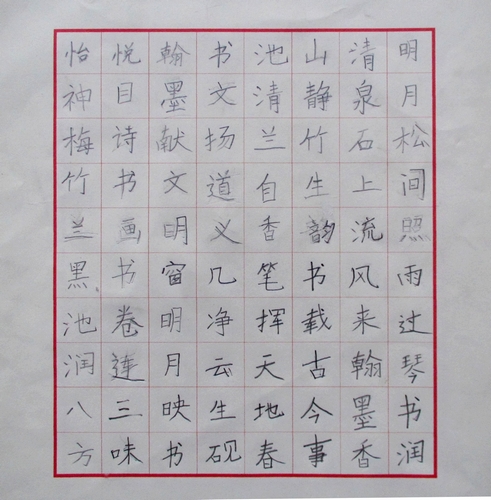 明月松间照雨过琴书润
清泉石上流风来翰墨香
山静竹生韵书载古今事
池清兰自香笔挥天地春
书文扬道义几净云生砚
翰墨献文明窗明月映书
悦目诗书画书卷莲三味
怡神梅竹兰黑池润八方